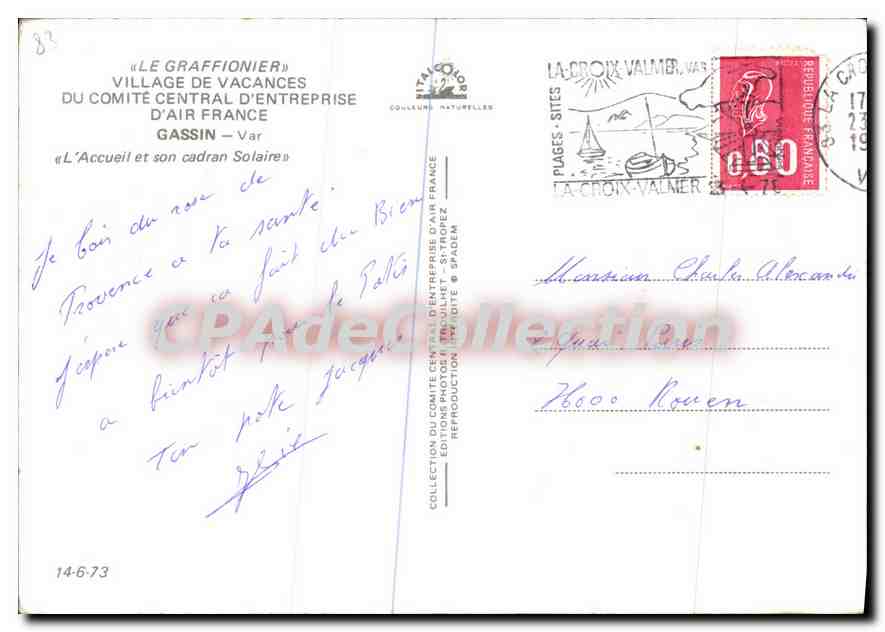 83
«LE GRAFFIONIER»
VILLAGE DE VACANCES
DU COMITÉ CENTRAL D'ENTREPRISE
D'AIR FRANCE
GASSIN — Var
«L'Accueil et son cadran Solaire»
Je bois du rose de
Provence a ta santé.
J'espere que ca fait du Bien
a bientôt pour le Patis
Ton pote Jacques
14-6-73
VITALCOLOR
COULEURS NATURELLES
COLLECTION DU COMITE CENTRAL D'ENTREPRISE D'AIR FRANCE
EDITIONS PHOTOS R. TROUILHET - St-TROPEZ
REPRODUCTION INTERDITE © SPADEM
LA-CROIX-VALMER, VAR
PLAGES - SITES
LA-CROIX-VALMER
REPUBLIQUE FRANÇAISE
0,80
83 LA CRO
17
23
19
V
Monsieur Charles Alexandre
Quai
76000 Rouen
CPAdeCollection